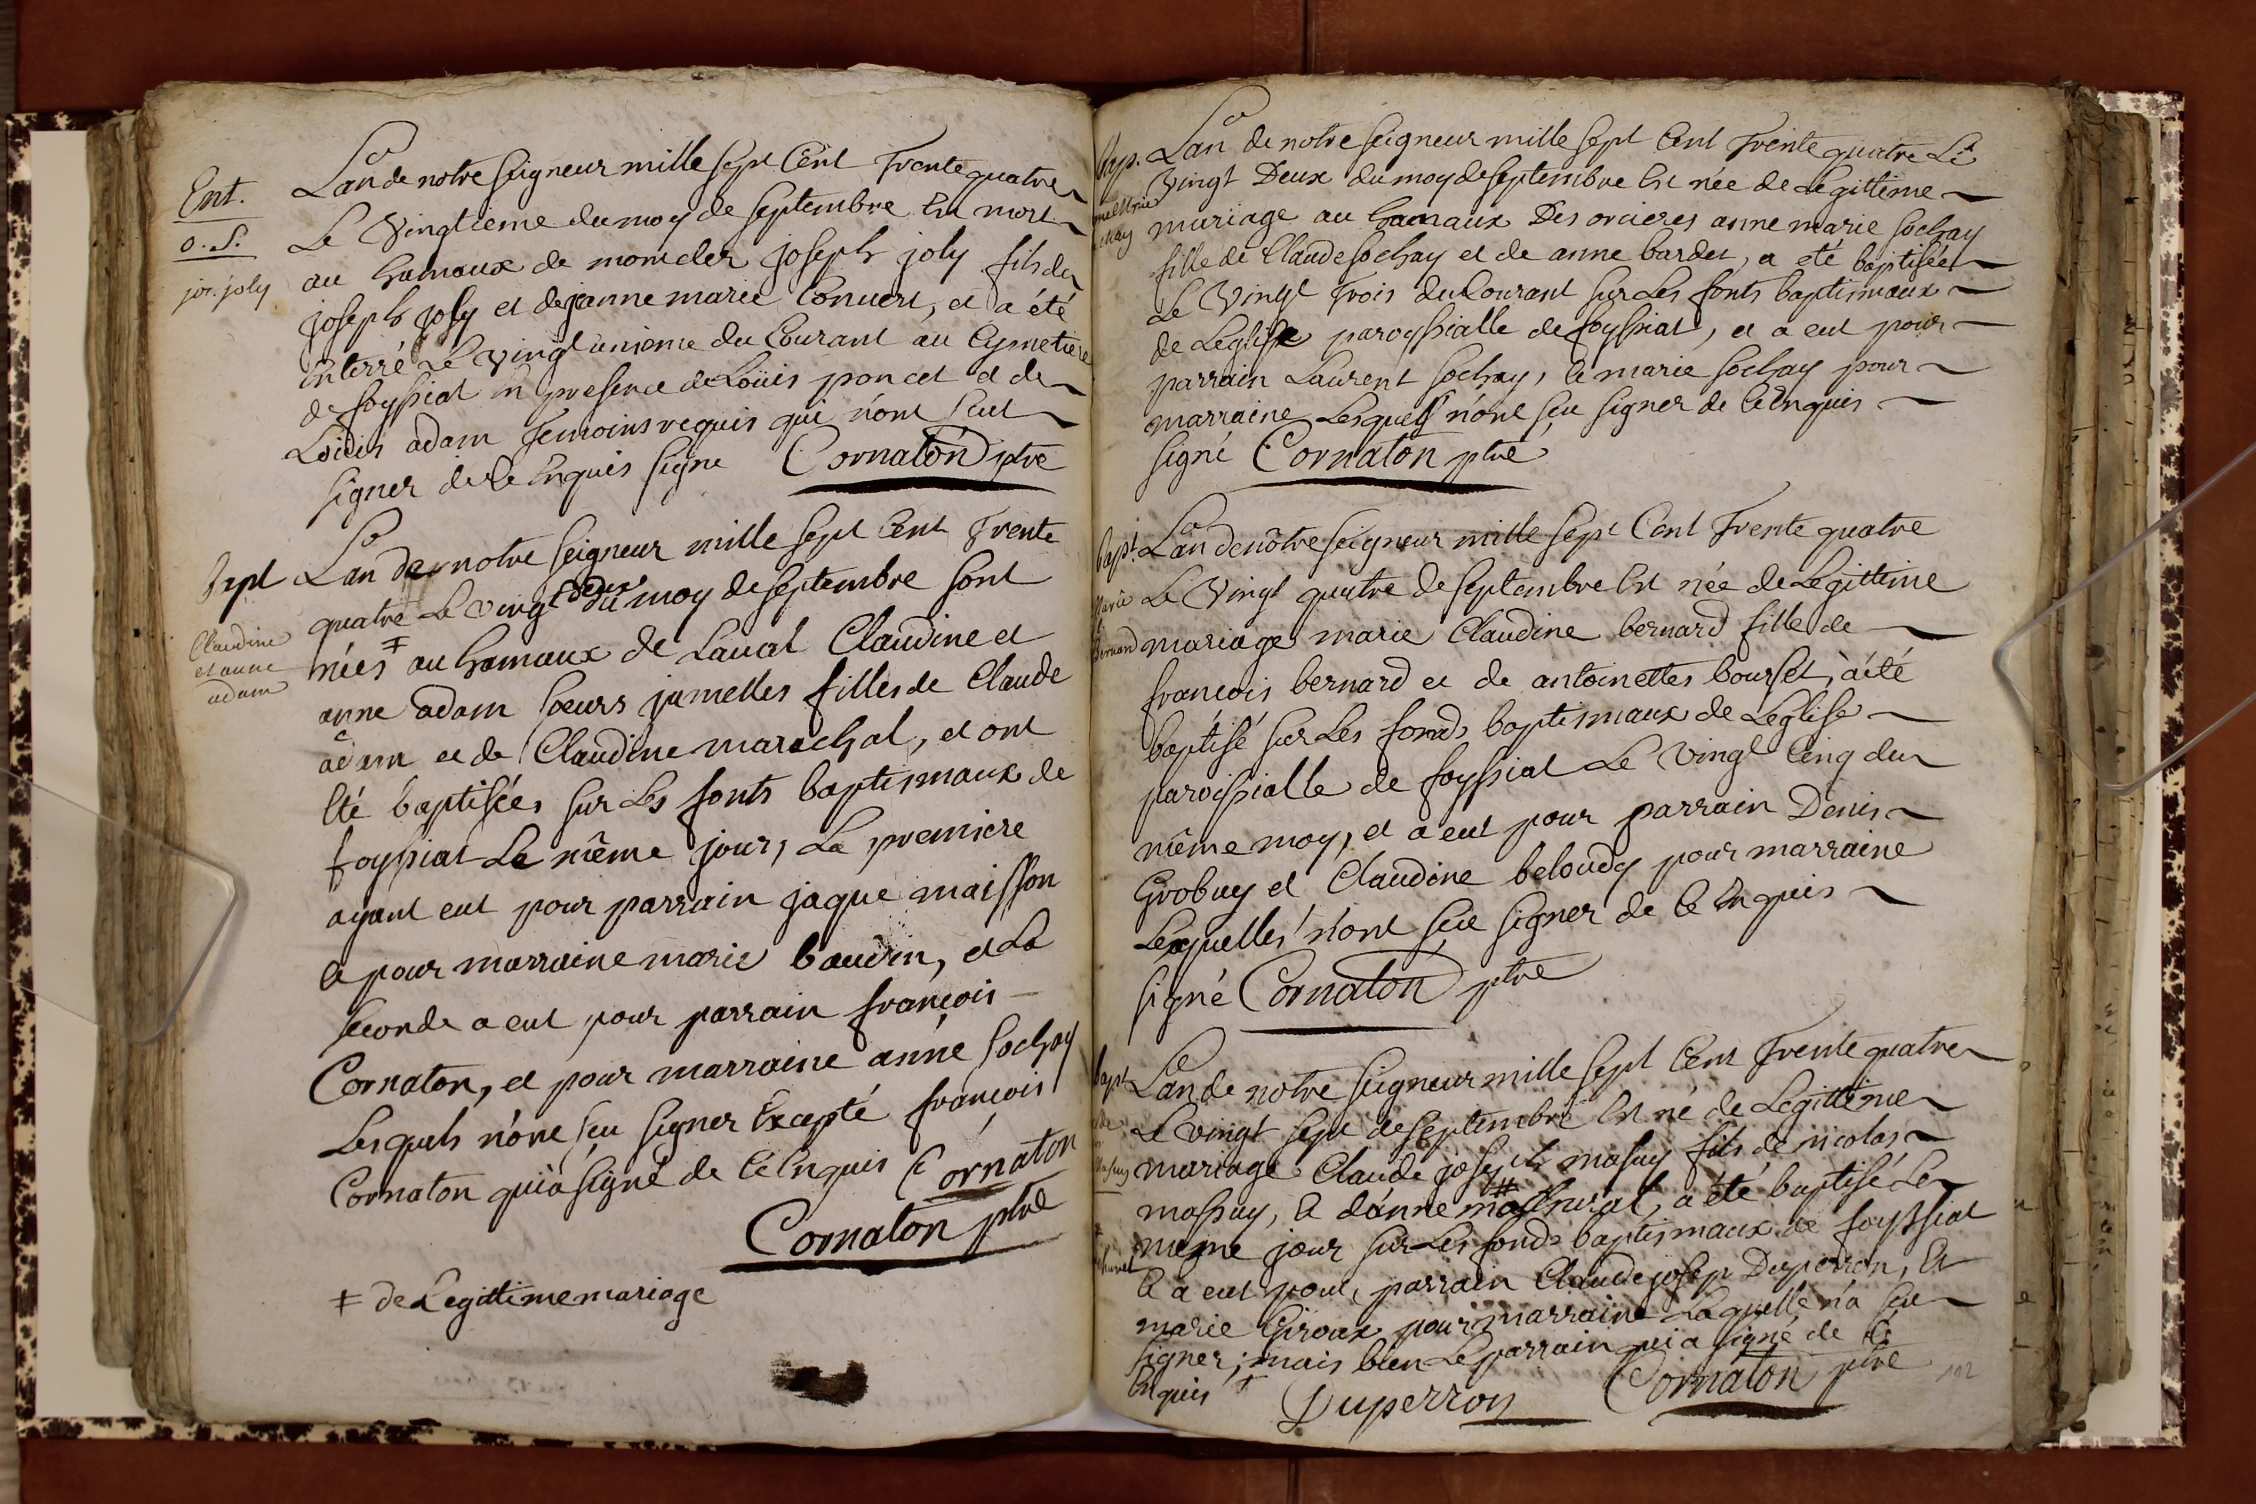 Ent.
o. S.
jos. joly
L'an de notre seigneur mille sept Cent Trente quatre
Le Vingtieme du moy de septembre Est mort
au hamaux de monidez joseph joly fils de
joseph joly et de janne marie Convert, et a été
Enterré Le vingt unieme du Courant au Cymetiere
de foyssiat En presence de Loüis poncet et de
Loüis adam Temoins requis qui n'ont sceut
signer de ce Enquis signe Cornaton ptre
Bapt
Claudine
et anne
adam
L'an de notre seigneur mille sept Cent Trente
quatre Le vingt deux du moy de septembre sont
nées ‡ au hamaux de Laval Claudine et
anne adam soeurs jumelles filles de Claude
adam et de Claudine marechal, et ont
Eté baptisées sur Les fonts baptismaux de
foyssiat Le même jour, La premiere
ayant eut pour parrain jaque maisson
Et pour marraine marie baudin, et La
seconde a eut pour parrain françois
Cornaton, et pour marraine anne sochay
Lesquels n'one sçeu signer Excepté françois
Cornaton qui a signé de Ce Enquis Cornaton
Cornaton ptre
‡ de Legittime mariage
Bap.
L'an de notre seigneur mille sept Cent Trente quatre Le
Vingt Deux du moy de septembre Est née de Legittime
mariage au hamaux Des orcieres anne marie sochay
fille de Claude sochay et de anne bardet, a eté baptisée
Le Vingt Trois du Courant sur Les fonts baptismaux
de Leglise paroyssialle de foyssiat, et a eut pour
parrain Laurent sochay, Et marie sochay pour
marraine Lesquels n'one seu signer de Ce Enquis
signé Cornaton ptre
bapt.
Marie
Bernard
L'an de nôtre seigneur mille sept Cent Trente quatre
Le Vingt quatre de septembre Est née de Legittime
mariage marie Claudine bernard fille de
francois bernard et de antoinettes bourset, a été
baptisé sur Les fonds baptismaux de Leglise
paroissialle de foyssiat Le Vingt Cinq du
même moy, et a eut pour parrain Denis
Grobuy et Claudine beloudy pour marraine
Lesquelles n'ont sçeu signer de Ce Enquis
signé Cornaton ptre
bapt
L'an de notre seigneur mille sept Cent Trente quatre
Le vingt sept de septembre Est né de Legittime
mariage Claude joseph masuy fils de nicolas
massuy, Et d'anne a été baptisé Le
meme jour sur Les fonds baptismaux de foyssiat
Et a eut pour parrain Claude josep Duperron, Et
marie Giroux pour marraine Laquelle n'a sceu
signer; mais bien Le parrain qui a signé de Ce
Enquis Duperron Cornaton ptre